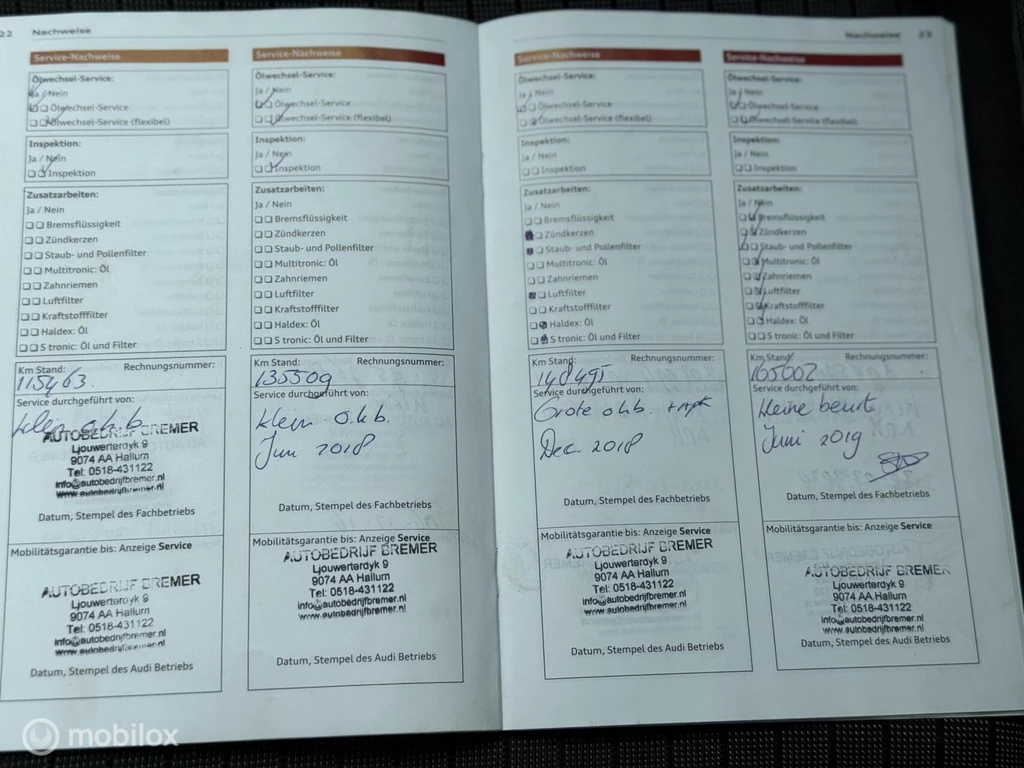 22 Nachweise
Service-Nachweise
Ölwechsel-Service:
Ja / Nein
Ölwechsel-Service
Ölwechsel-Service (flexibel)
Inspektion:
Ja / Nein
Inspektion
Zusatzarbeiten:
Ja / Nein
Bremsflüssigkeit
Zündkerzen
Staub- und Pollenfilter
Multitronic: Öl
Zahnriemen
Luftfilter
Kraftstofffilter
Haldex: Öl
S tronic: Öl und Filter
Km Stand: Rechnungsnummer:
115463
Service durchgeführt von:
klein o.h.b.
AUTOBEDRIJF BREMER
Ljouwerterdyk 9
9074 AA Hallum
Tel: 0518-431122
info@autobedrijfbremer.nl
www.autobedrijfbremer.nl
Datum, Stempel des Fachbetriebs
Mobilitätsgarantie bis: Anzeige Service
AUTOBEDRIJF BREMER
Ljouwerterdyk 9
9074 AA Hallum
Tel: 0518-431122
info@autobedrijfbremer.nl
www.autobedrijfbremer.nl
Datum, Stempel des Audi Betriebs
Service-Nachweise
Ölwechsel-Service:
Ja / Nein
Ölwechsel-Service
Ölwechsel-Service (flexibel)
Inspektion:
Ja / Nein
Inspektion
Zusatzarbeiten:
Ja / Nein
Bremsflüssigkeit
Zündkerzen
Staub- und Pollenfilter
Multitronic: Öl
Zahnriemen
Luftfilter
Kraftstofffilter
Haldex: Öl
S tronic: Öl und Filter
Km Stand: Rechnungsnummer:
135509
Service durchgeführt von:
klein o.h.b.
Juni 2018
Datum, Stempel des Fachbetriebs
Mobilitätsgarantie bis: Anzeige Service
AUTOBEDRIJF BREMER
Ljouwerterdyk 9
9074 AA Hallum
Tel: 0518-431122
info@autobedrijfbremer.nl
www.autobedrijfbremer.nl
Datum, Stempel des Audi Betriebs
Nachweise 23
Service-Nachweise
Ölwechsel-Service:
Ja / Nein
Ölwechsel-Service
Ölwechsel-Service (flexibel)
Inspektion:
Ja / Nein
Inspektion
Zusatzarbeiten:
Ja / Nein
Bremsflüssigkeit
Zündkerzen
Staub- und Pollenfilter
Multitronic: Öl
Zahnriemen
Luftfilter
Kraftstofffilter
Haldex: Öl
S tronic: Öl und Filter
Km Stand: Rechnungsnummer:
148495
Service durchgeführt von:
Grote o.h.b. + apk
Dec. 2018
Datum, Stempel des Fachbetriebs
Mobilitätsgarantie bis: Anzeige Service
AUTOBEDRIJF BREMER
Ljouwerterdyk 9
9074 AA Hallum
Tel: 0518-431122
info@autobedrijfbremer.nl
www.autobedrijfbremer.nl
Datum, Stempel des Audi Betriebs
Service-Nachweise
Ölwechsel-Service:
Ja / Nein
Ölwechsel-Service
Ölwechsel-Service (flexibel)
Inspektion:
Ja / Nein
Inspektion
Zusatzarbeiten:
Ja / Nein
Bremsflüssigkeit
Zündkerzen
Staub- und Pollenfilter
Multitronic: Öl
Zahnriemen
Luftfilter
Kraftstofffilter
Haldex: Öl
S tronic: Öl und Filter
Km Stand: Rechnungsnummer:
165002
Service durchgeführt von:
Kleine beurt
Juni 2019
Datum, Stempel des Fachbetriebs
Mobilitätsgarantie bis: Anzeige Service
AUTOBEDRIJF BREMER
Ljouwerterdyk 9
9074 AA Hallum
Tel: 0518-431122
info@autobedrijfbremer.nl
www.autobedrijfbremer.nl
Datum, Stempel des Audi Betriebs
mobilox